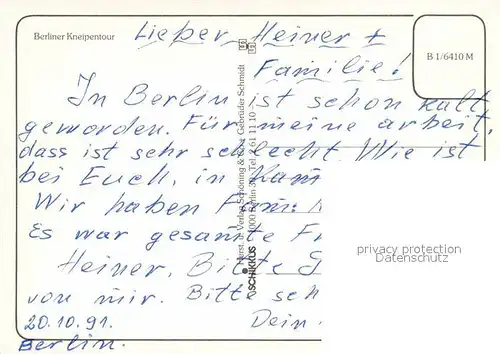 Berliner Kneipentour
Lieber Heiner +
Familie!
B 1/6410 M
In Berlin ist schon kalt
geworden. Für meine arbeit,
dass ist sehr schlecht. Wie ist
bei Euch, in
Wir haben
Es war gesamte
Heiner, Bitte
von mir. Bitte
20.10.91. Dein
Berlin.
Kunst- u. Verlag Schöning & Co + Gebrüder Schmidt
1000 Berlin Tel. 611 11 10
SCHIKKUS
privacy protection
Datenschutz